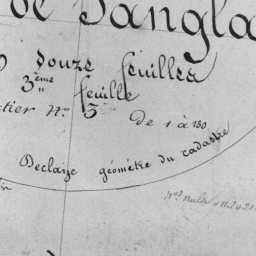 de Sangla
douze feuilles
3ème feuille
ctier Nº 3
De 1 à 130
Declaize géomètre du cadastre